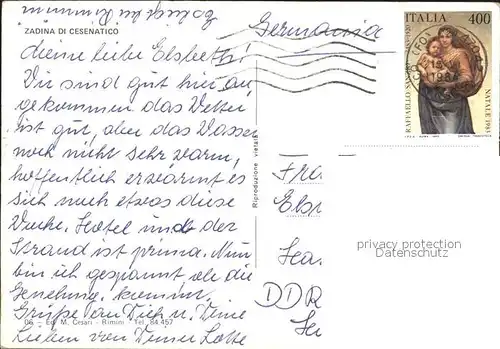 ZADINA DI CESENATICO
Germania
ITALIA 400
RAFFAELLO
NATALE 1983
meine liebe Elsbeth!
Wir sind gut hier an,
gekommen das Wetter
ist gut, aber das Wasser
noch nicht sehr warm,
hoffentlich erwärmt es
sich noch etwas diese
Woche. Hotel und der
Strand ist prima. Nun
bin ich gespannt ob die
Genehmg. kommt.
Grüße an Dich u. Deine
Lieben von Deiner Lotte
06 - Ed. M. Cesari - Rimini Tel. 84.457
Riproduzione vietata
Fra
Elsb
privacy protection
Datenschutz
DDR